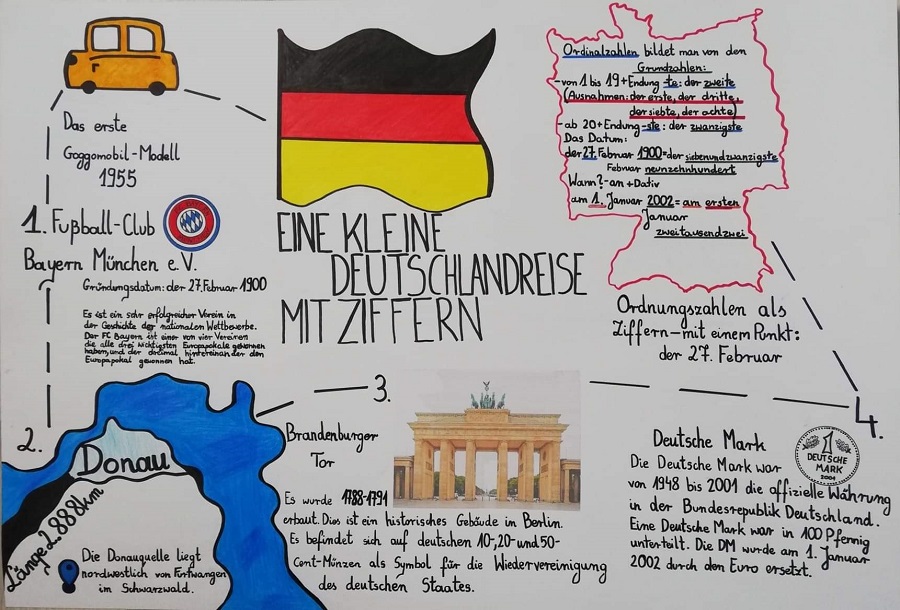 Das erste
Goggomobil-Modell
1955
1. Fußball-Club
Bayern München e.V.
Gründungsdatum: der 27. Februar 1900
Es ist ein sehr erfolgreicher Verein in
der Geschichte der nationalen Wettbewerbe.
Der FC Bayern ist einer von vier Vereinen
die alle drei wichtigsten Europapokale gewonnen
haben, und der dreimal hintereinander den
Europapokal gewonnen hat.
EINE KLEINE
DEUTSCHLANDREISE
MIT ZIFFERN
Ordinalzahlen bildet man von den
Grundzahlen:
-von 1 bis 19 + Endung -te: der zweite
(Ausnahmen: der erste, der dritte,
der siebte, der achte)
-ab 20 + Endung -ste: der zwanzigste
Das Datum:
der 27. Februar 1900 = der siebenundzwanzigste
Februar neunzehnhundert
Wann? - an + Dativ
am 1. Januar 2002 = am ersten
Januar
zweitausendzwei
Ordnungszahlen als
Ziffern – mit einem Punkt:
der 27. Februar
2.
Donau
Länge 2.888km
Die Donauquelle liegt
nordwestlich von Furtwangen
im Schwarzwald.
3.
Brandenburger
Tor
Es wurde 1788-1791
erbaut. Dies ist ein historisches Gebäude in Berlin.
Es befindet sich auf deutschen 10-, 20- und 50-
Cent-Münzen als Symbol für die Wiedervereinigung
des deutschen Staates.
4.
Deutsche Mark
1
DEUTSCHE
MARK
2001
Die Deutsche Mark war
von 1948 bis 2001 die offizielle Währung
in der Bundesrepublik Deutschland.
Eine Deutsche Mark war in 100 Pfennig
unterteilt. Die DM wurde am 1. Januar
2002 durch den Euro ersetzt.